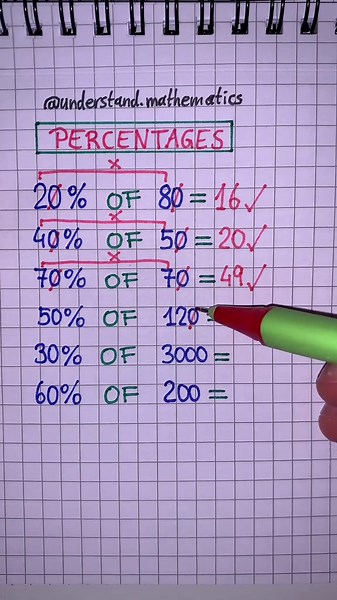 @understand.mathematics
PERCENTAGES
×
20% OF 80 = 16 ✓
×
40% OF 50 = 20 ✓
×
70% OF 70 = 49 ✓
50% OF 120 =
30% OF 3000 =
60% OF 200 =